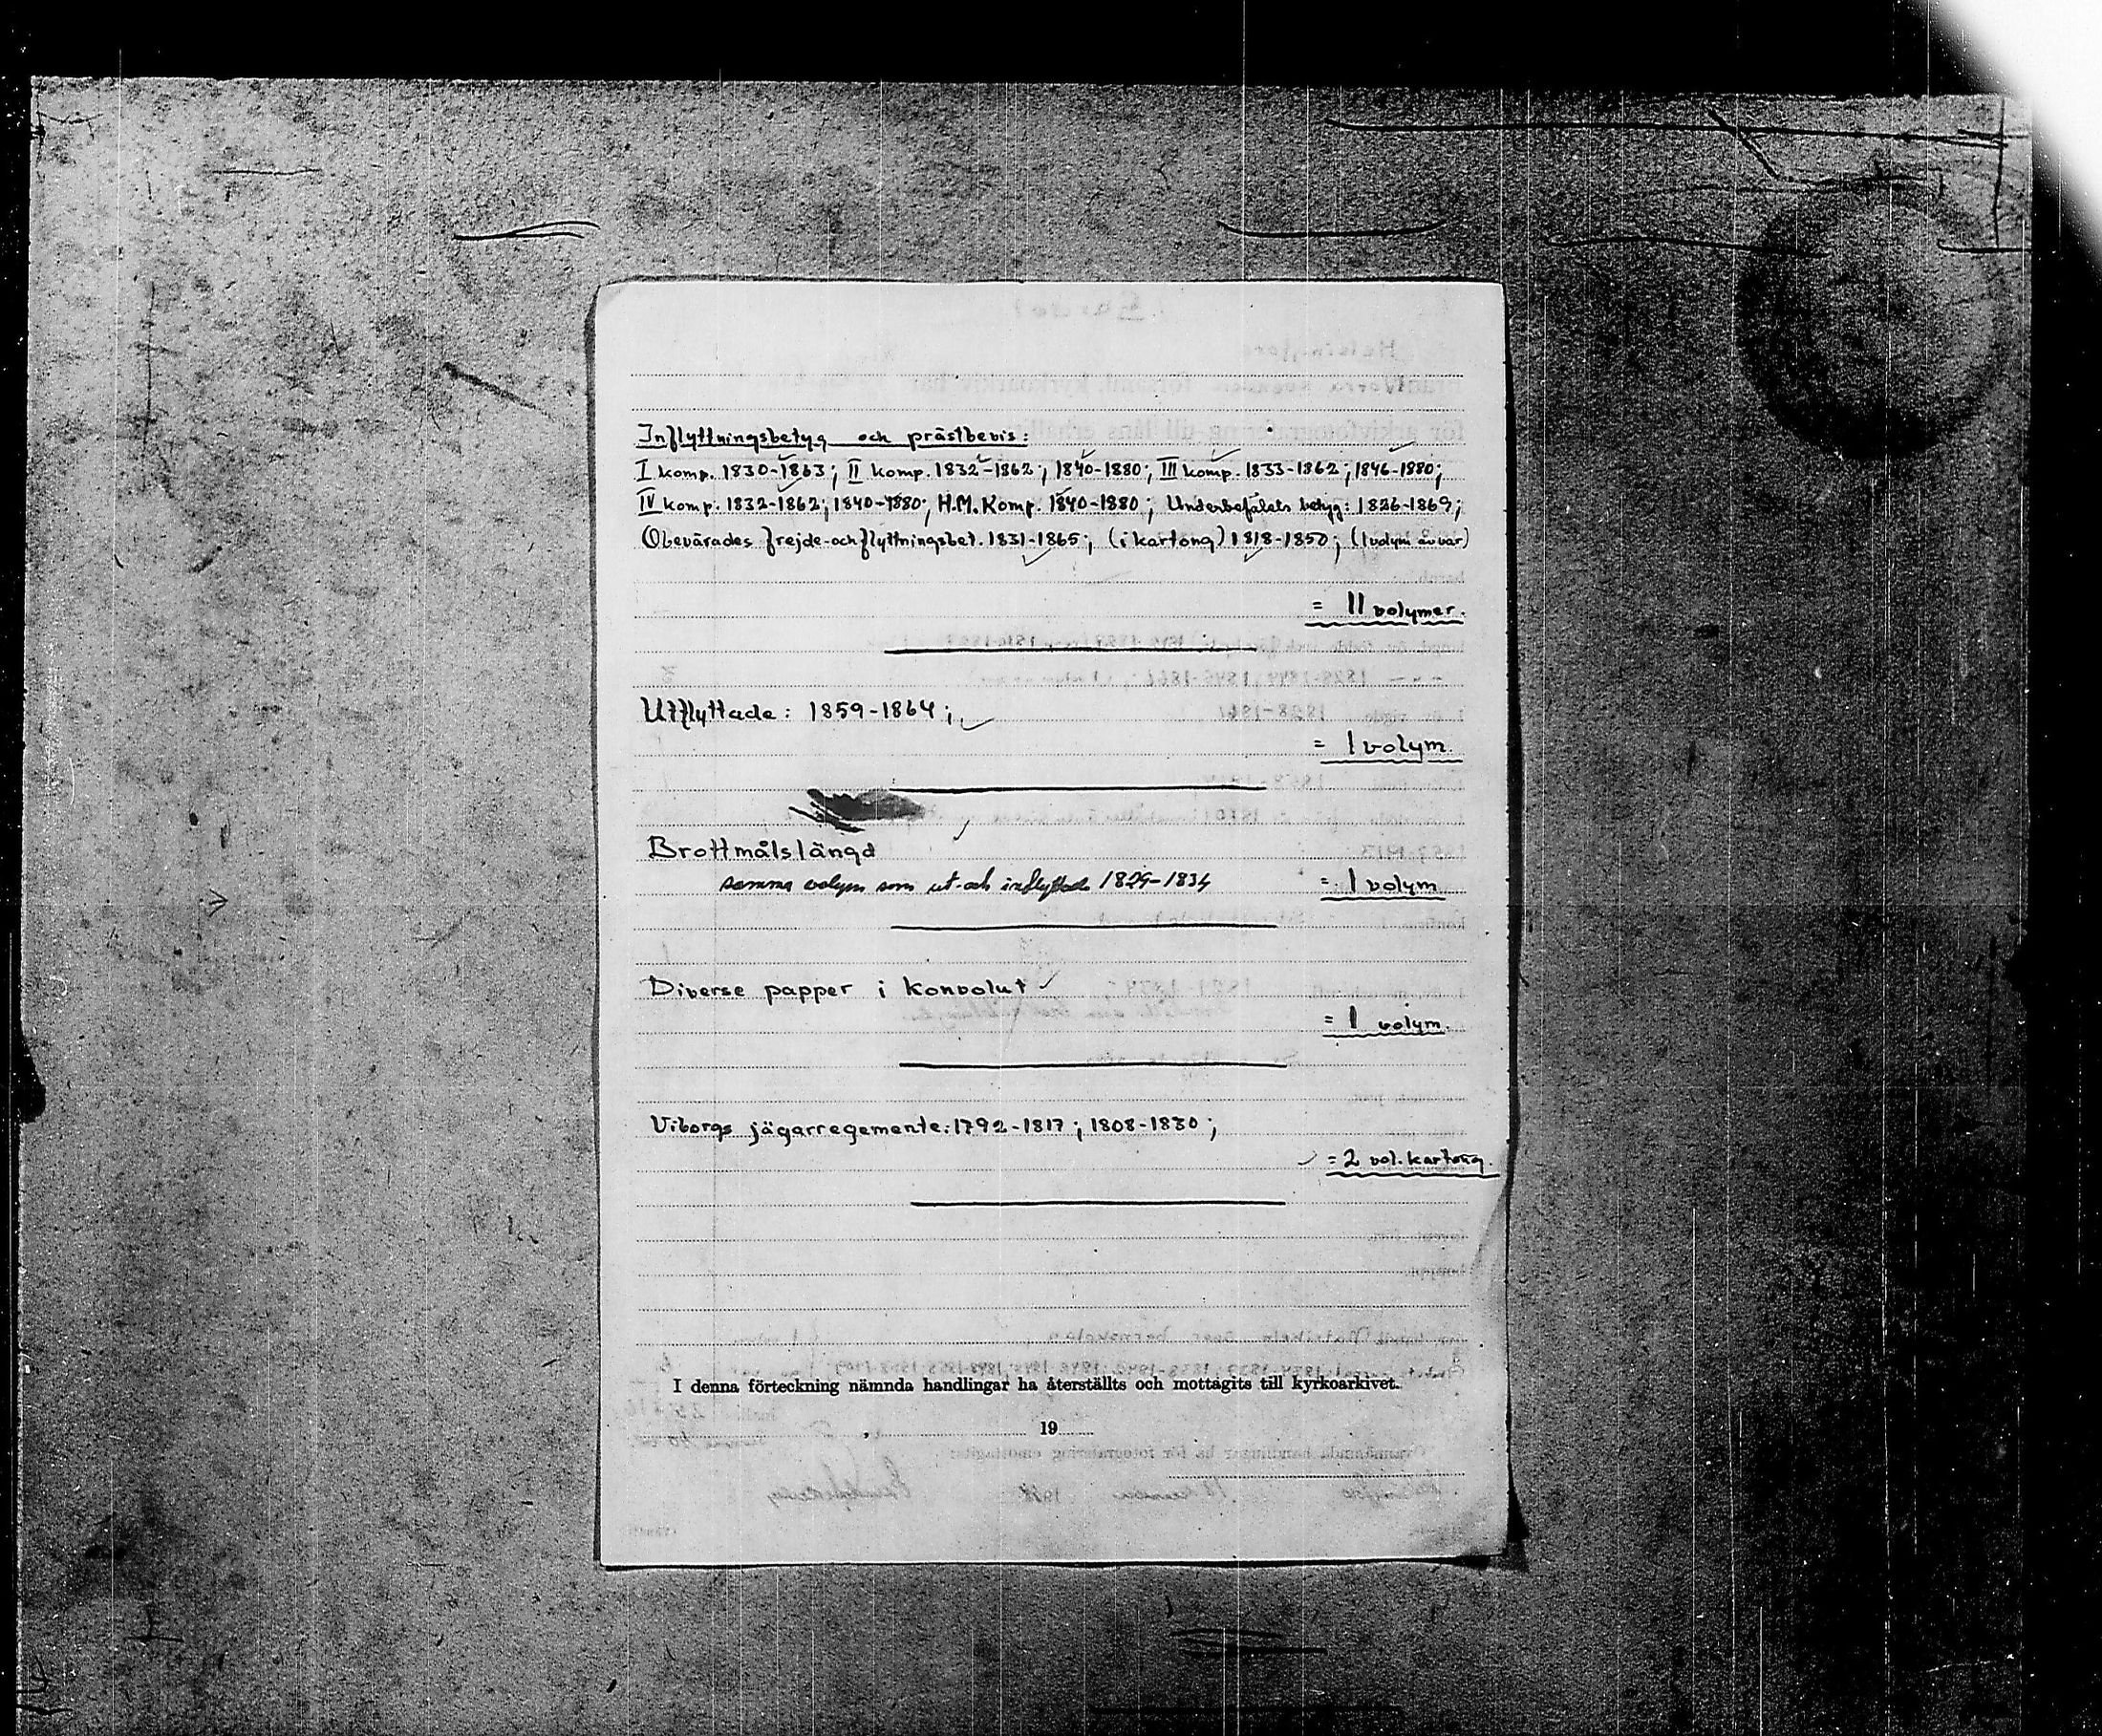 Inflyttningsbetyg och prästbevis:
I komp. 1830-1863; II komp. 1832-1862; 1840-1880; III komp. 1833-1862; 1846-1880;
IV komp. 1832-1862; 1840-1880; H.M. Komp. 1840-1880; Underbefälets betyg: 1826-1869;
Obevärades frejde-och flyttningsbet. 1831-1865; (i kartong) 1818-1850; (1 volym av var)
= 11 volymer.
Utflyttade: 1859-1864;
= 1 volym.
Brottmålslängd
samma volym som ut-och inflyttade 1829-1834 = 1 volym
Diverse papper i konvolut
= 1 volym.
Viborgs jägarregemente: 1792-1817; 1808-1830;
= 2 vol. kartong.
I denna förteckning nämnda handlingar ha återställts och mottagits till kyrkoarkivet.
19